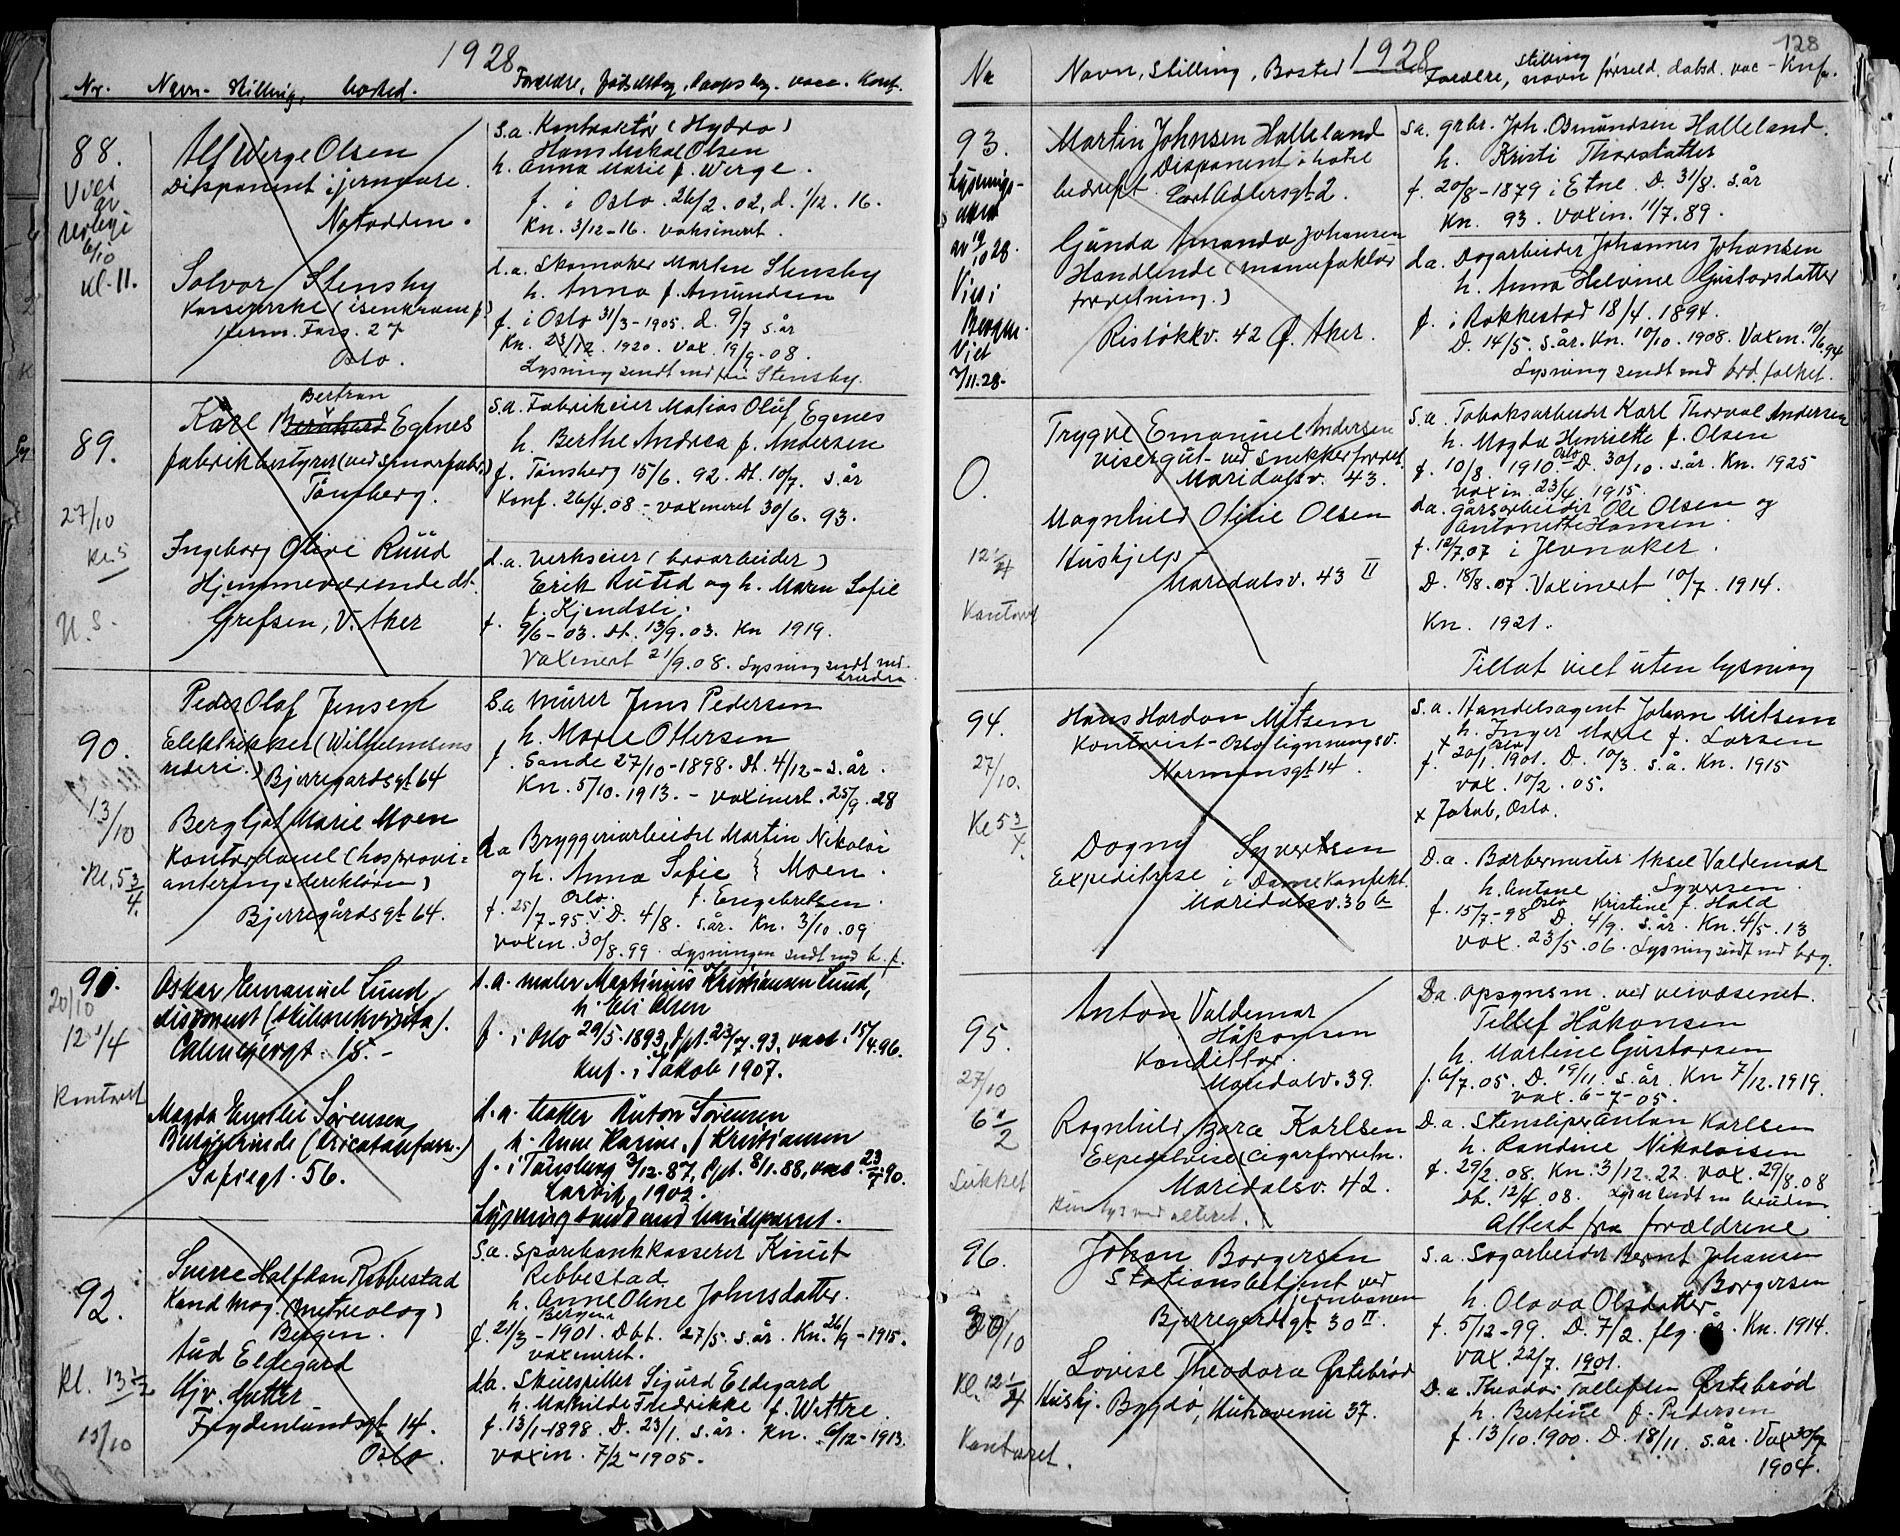 1928
Nr. Navn - Stilling, bosted. Forældre, fødselsdag, daapsdag. vacc. Konf.
88.
Viet
av
6/10
kl. 11.
Alf Werge Olsen
Disponent i jernvare.
Notodden.
s.a. Kontraktør (Hydro)
Hans Olsen
h. Anna Marie f. Werge.
f. i Oslo 26/2. 02, d. 1/12. 16.
Kn. 3/12-16. vaksinert.
Solvor Stensby
Kassererske (isenkramf)
Herm. Foss. 27
Oslo.
d.a. Skomaker Martin Stensby
h. Anna f. Amundsen
f. i Oslo 31/3-1905. D. 9/7 s.år
Kn. 23/12. 1920. Vax. 19/9-08.
Lysning sendt med frk. Stensby.
89.
27/10
Kl 5
U.S.
Bertran
Karl Bernhard Egenes
fabrikbestyrer (ved Smørfabr.)
Tønsberg.
s.a. Fabrikeier Matias Oluf Egenes
h. Berthe Andrea f. Andersen
f. Tønsberg 15/6. 92. Dt. 10/7. s.år
Konf. 26/4. 08 - vaxineret 30/6. 93.
Ingeborg Olive Ruud
Hjemmeværende dt.
Grefsen, V. Aker
d.a. Verkseier (broarbeider)
Erik Ruud og h. Maren Sofie
f. Kjendsli.
f. 9/6-03. Dt. 13/9.03. Kn 1919.
Vaxinert 21/9.08. Lysning sendt med
bruden
90.
13/10
Kl. 5 3/4.
Peder Olaf Jensen
Elektrikker (Wilhelmsens
rederi.) Bjerregårdsgt 64
s.a murer Jens Pedersen
h. Marie Ottersen
f. Sande 27/10-1898. Dt. 4/12- s.år.
Kn. 5/10. 1913. - vaxinert. 25/9. 28
Bergljot Marie Moen
Kontordame (hos provi=
anteringsdirektøren)
Bjerregårdsgt 64.
d.a Bryggeriarbeider Martin Nikolai
og h. Anna Sofie } Moen.
Oslo. f. Engebretsen.
f. 25/7-95. D. 4/8. s.år. Kn. 3/10. 09
vaxin. 30/8. 99. Lysningen sendt med b.p.
91.
20/10
12 1/4
Kontoret
Oskar Emanuel Lund
disponent (skiltrekvisita).
Calmeyergt. 15. -
s.a. maler Martinius Kristiansen Lund,
h. Eli Olsen
f. i Oslo 29/5. 1893, dpt. 23/7. 93, vacc. 15/4. 96.
Knf. i Jakob 1907.
Magda Emilie Sørensen
Sofiegt. 56.
d.a. Anton Sørensen
h. Anne Karine f. Kristiansen
f. i Tønsberg 3/12. 87, dpt. 8/1. 88, vacc. 23/7. 90.
Larvik 1902.
Lysning sendt med brudeparret.
92.
Kl. 13 1/2
13/10
Sverre Halfdan Rebbestad
Kand mag. (metreolog)
Bergen.
s.a. Sparebankkasserer Knut
Rebbestad
h. Anne Oline Johnsdatter.
Bergen
f. 21/3-1901. Dbt. 27/5. s.år. Kn. 26/9-1915.
vaxineret.
Aud Eldegard
Hjv. datter
Frydenlundsgt 14.
Oslo.
d.a. Skuespiller Sigurd Eldegard
h. Mathilde Fredrikke f. Wittre.
f. 13/1-1898. D. 23/1. s.år. Kn. 6/12-1913.
Vaxin. 7/2-1905.
128
1928
Nr Navn, Stilling, Bosted Forældre, stilling navn, fødseld. dåbsd. vac - Knf.
93.
Lysnings-
av 19/10 28.
Vies i
Bergen.
Viet
3/11. 28.
Martin Johnsen Halleland
Disponent i hotel
bedrift. Cort Adlersgt 2.
s.a. grbr. Joh. Osmundsen Halleland.
h. Kristi Thorstatter
f. 20/8-1879 i Etne. D. 31/8. s.år
Kn. 93. Vaxin. 11/7. 89.
Gunda Amanda Johansen
Handlende (manufaktur
forretning.)
Risløkkv. 42 Ø. Aker.
d.a. Dagarbeider Johannes Johansen
h. Anna Helvine Gustavsdatter
f. i Rakkestad 18/4. 1894.
D. 14/5. s.år. Kn. 10/10. 1908. Vaxin. 10/6 94
Lysning sendt med brd. folket.
0.
12 1/4
Kontoret
Trygve Emanuel Andersen
Visergut - ved snekkerforret.
Maridalsv. 43.
s.a. Tobaksarbeider Karl Thorvald Andersen
h. Magda Henriette f. Olsen
f. 10/8 1910. Oslo - D. 30/10. s.år. Kn. 1925
vaxin. 23/4. 1915.
Magnhild Otilie Olsen
Hushjelp -
Maridalsv. 43 II
d.a. gårsarbeider Ole Olsen og
Antonette Hansen.
f. 12/7.07 i Jevnaker.
D. 18/8. 07. Vaxinert 10/7. 1914.
Kn. 1921.
Tillat viet uten lysning
94.
27/10.
Kl 5 3/4.
Hans Hardon Mitsem
Kontorist - Oslo ligningsv.
Normansgt 14.
s.a. Handelsagent Johan Mitsem
h. Inger Marie f. Larsen
f. 20/1. 1901. Oslo D. 10/3. s.å. Kn. 1915
vax. 10/2. 05.
x Jakob, Oslo.
Dagny Syvertsen
Expeditrise i Damekonfekt.
Maridalsv. 30 a
D.a. Barbermester Aksel Valdemar
Syversen.
h. Antone Kristine f. Hald
f. 15/7-98 Oslo D. 4/9. s.år. Kn. 4/5. 13
vax. 23/5. 06. Lysning sendt med brg.
95.
27/10
6 1/2
Lukket
Anton Valdemar
Håkonsen
Konditor.
Maridalsv. 39.
D.a. Opsynsm. ved veivæsenet.
Tellef Håkonsen
h. Martine Gustavsen
f. 6/7. 05. D. 19/11. s.år. Kn 7/12. 1919.
vax. 6-7-05.
Ragnhild Bara Karlsen
Expeditrise Cigarforretn.
Maridalsv. 42.
Kun lys ved alteret.
D.a. Stensliper Anton Karlsen
h. Randine Nikolaisen
f. 29/2. 08. Kn. 3/12. 22. vax. 29/8. 08
Db. 12/4 08. Lysn sendt m bruden
Attest fra forældrene
96.
20/10
Kl. 12 1/4
Kontoret.
Johan Borgersen
Stationsbetjent ved
jernbanen
Bjerregårdsgt 30 II.
s.a. Sagarbeider Bernt Johansen
Borgersen
h. Olava Olsdatter
f. 5/12-99. D. 7/2. flg. år. Kn. 1914.
vax. 22/7. 1901.
Lovise Theodora Østebrød
Hushj. Bygdø, Hukavenie 37.
D.a. Theodor Tallefsen Østebrød
h. Bertine f. Pedersen
f. 13/10. 1900. D. 18/11. s.år. Vax 30/7
1904.